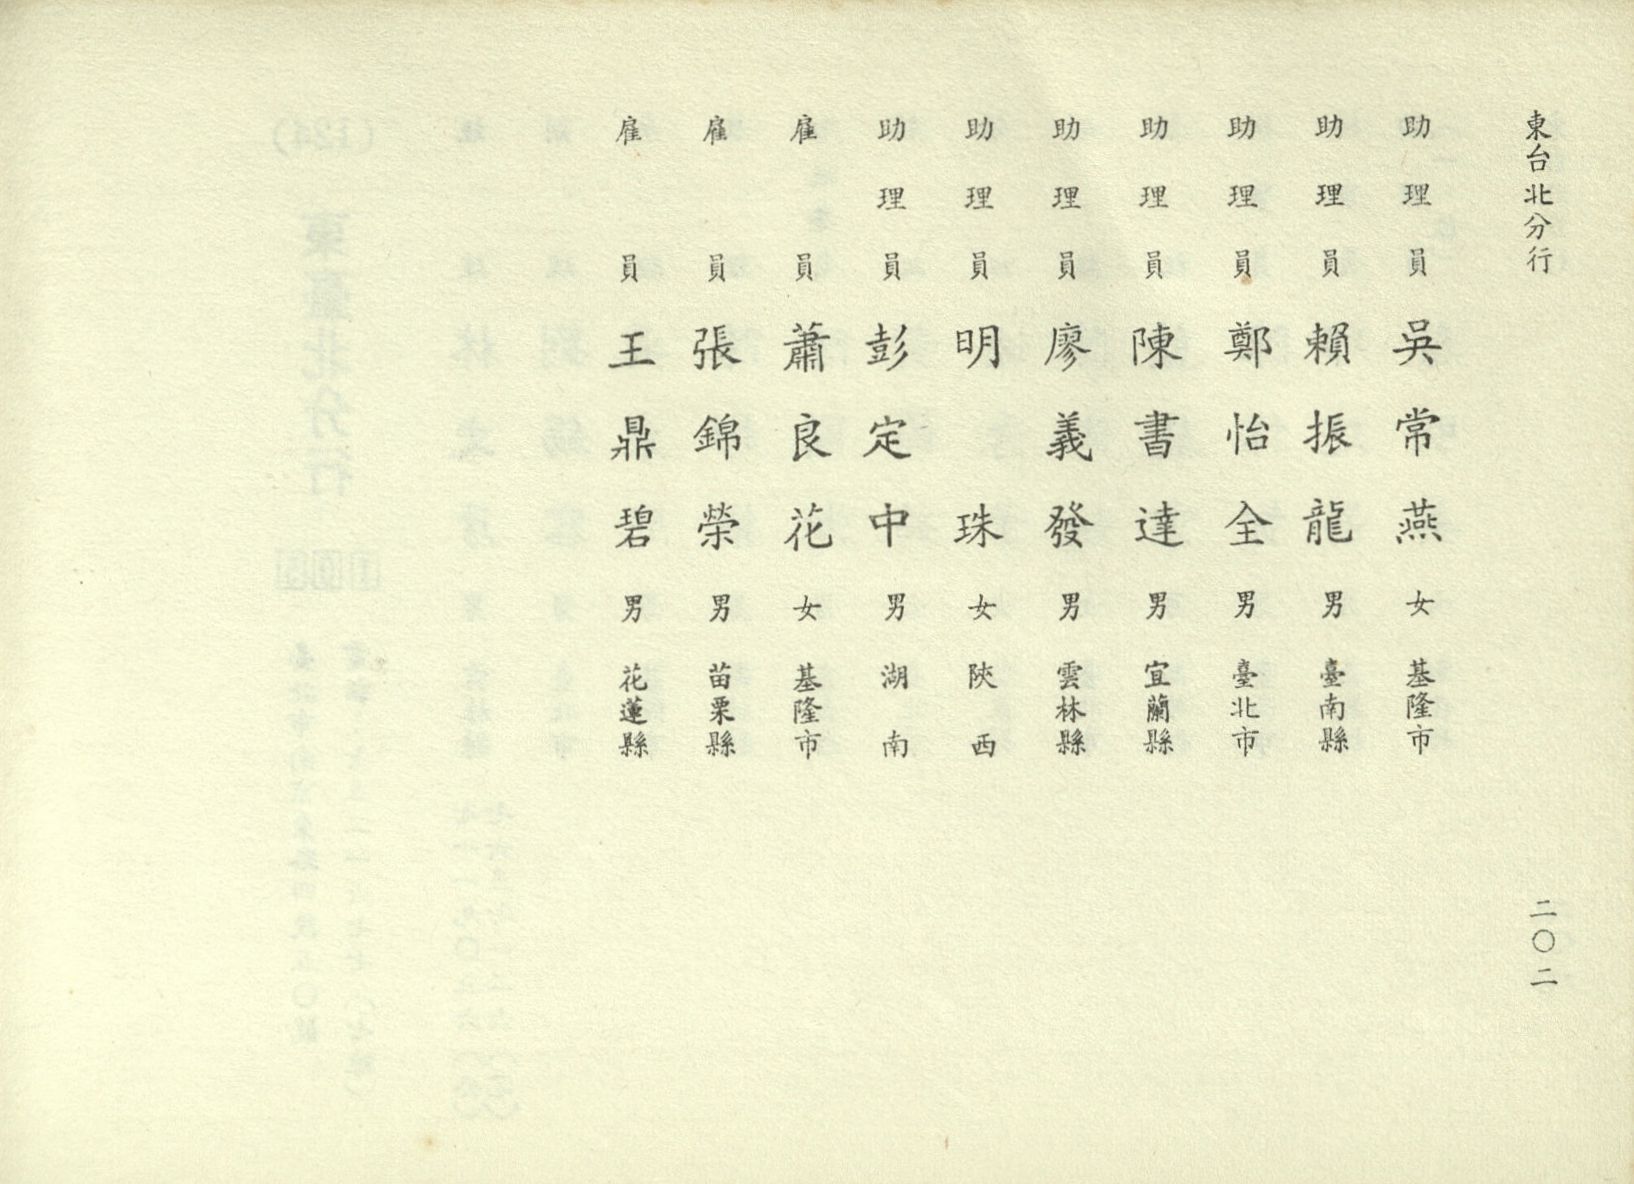 東台北分行
二〇二
助理員 吳常燕 女 基隆市
助理員 賴振龍 男 臺南縣
助理員 鄭怡全 男 臺北市
助理員 陳書達 男 宜蘭縣
助理員 廖義發 男 雲林縣
助理員 明珠 女 陝西
助理員 彭定中 男 湖南
雇員 蕭良花 女 基隆市
雇員 張錦榮 男 苗栗縣
雇員 王鼎碧 男 花蓮縣